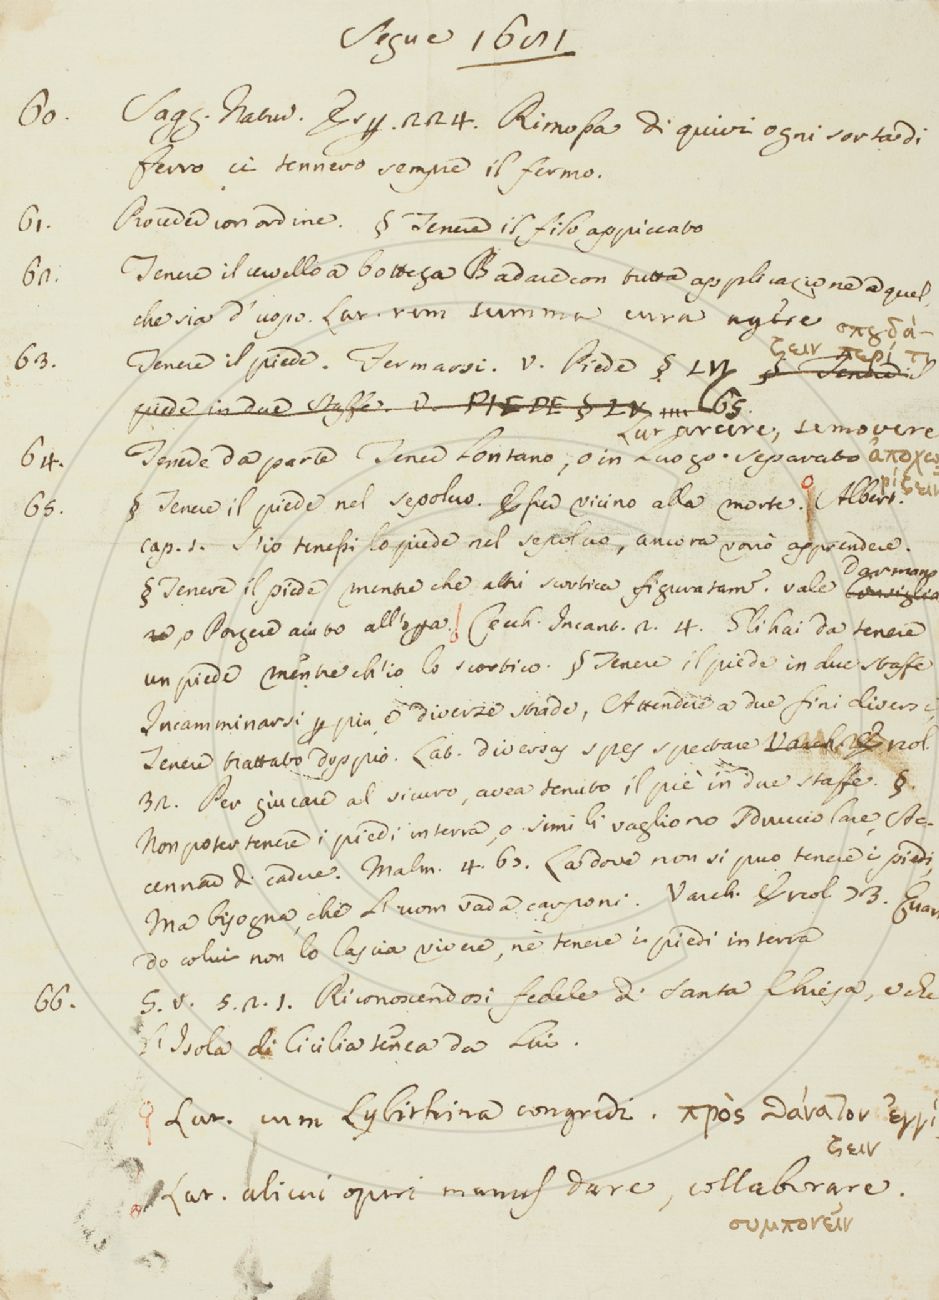 Segue 1681
60. Sagg. Natur. Esp. 224. Rimossa di quivi ogni sorta di
ferro ci tennero sempre il fermo.
61. Proceder con ordine. § Tenere il filo appiccato
62. Tenere il cervello a bottega Badare con tutta applicazione a quel,
che sia d'uopo. Lat. rem summa cura agere σπουδά-
ζειν περὶ τι
63. Tenere il piede. Fermarsi. V. Piede § LVI § Tenere il
piede in due Staffe. V. PIEDE § LX 65.
Lat. arcere, semovere
64. Tenere da parte Tener lontano, o in Luogo separato ἀποχω
ρίζειν
65. § Tenere il piede nel sepolcro. Esser vicino alla morte. Albert.
cap. 1. S'io tenessi lo piede nel sepolcro, ancora vorrò apprendere.
§ Tenere il piede mentre che altri scortica figuratam. vale Dar mano
Consiglio
o Porgere aiuto all'opra. Cecch. Incant. 2. 4. Gli hai da tenere
un piede mentre ch'io lo scortico. § Tenere il piede in due staffe
Incamminarsi p più e diverse strade, Attendere a due fini diversi,
Tener trattato doppio. Lat. diversas spes spectare Varch. Ercol.
32. Per giucare al sicuro, avea tenuto il piè in due staffe. §.
Non poter tenere i piedi in terra, o simili vagliono Sdrucciolare, Ac-
cennar di cadere. Malm. 4. 60. Laddove non si può tenere i piedi,
Ma bisogna, che l'uom vada carponi. Varch. Ercol 73. Quan
do colui non lo lascia vivere, nè tenere i piedi in terra
66. G. V. 5. 2. 1. Riconoscendosi fedele di Santa Chiesa, e che
l'Isola di Cicilia tenea da Lui.
Lat. cum Lybithina congredi. πρὸς θάνατον ἐγγί
ζειν
Lat. alicui operi manus dare, collaborare.
συμπονεῖν